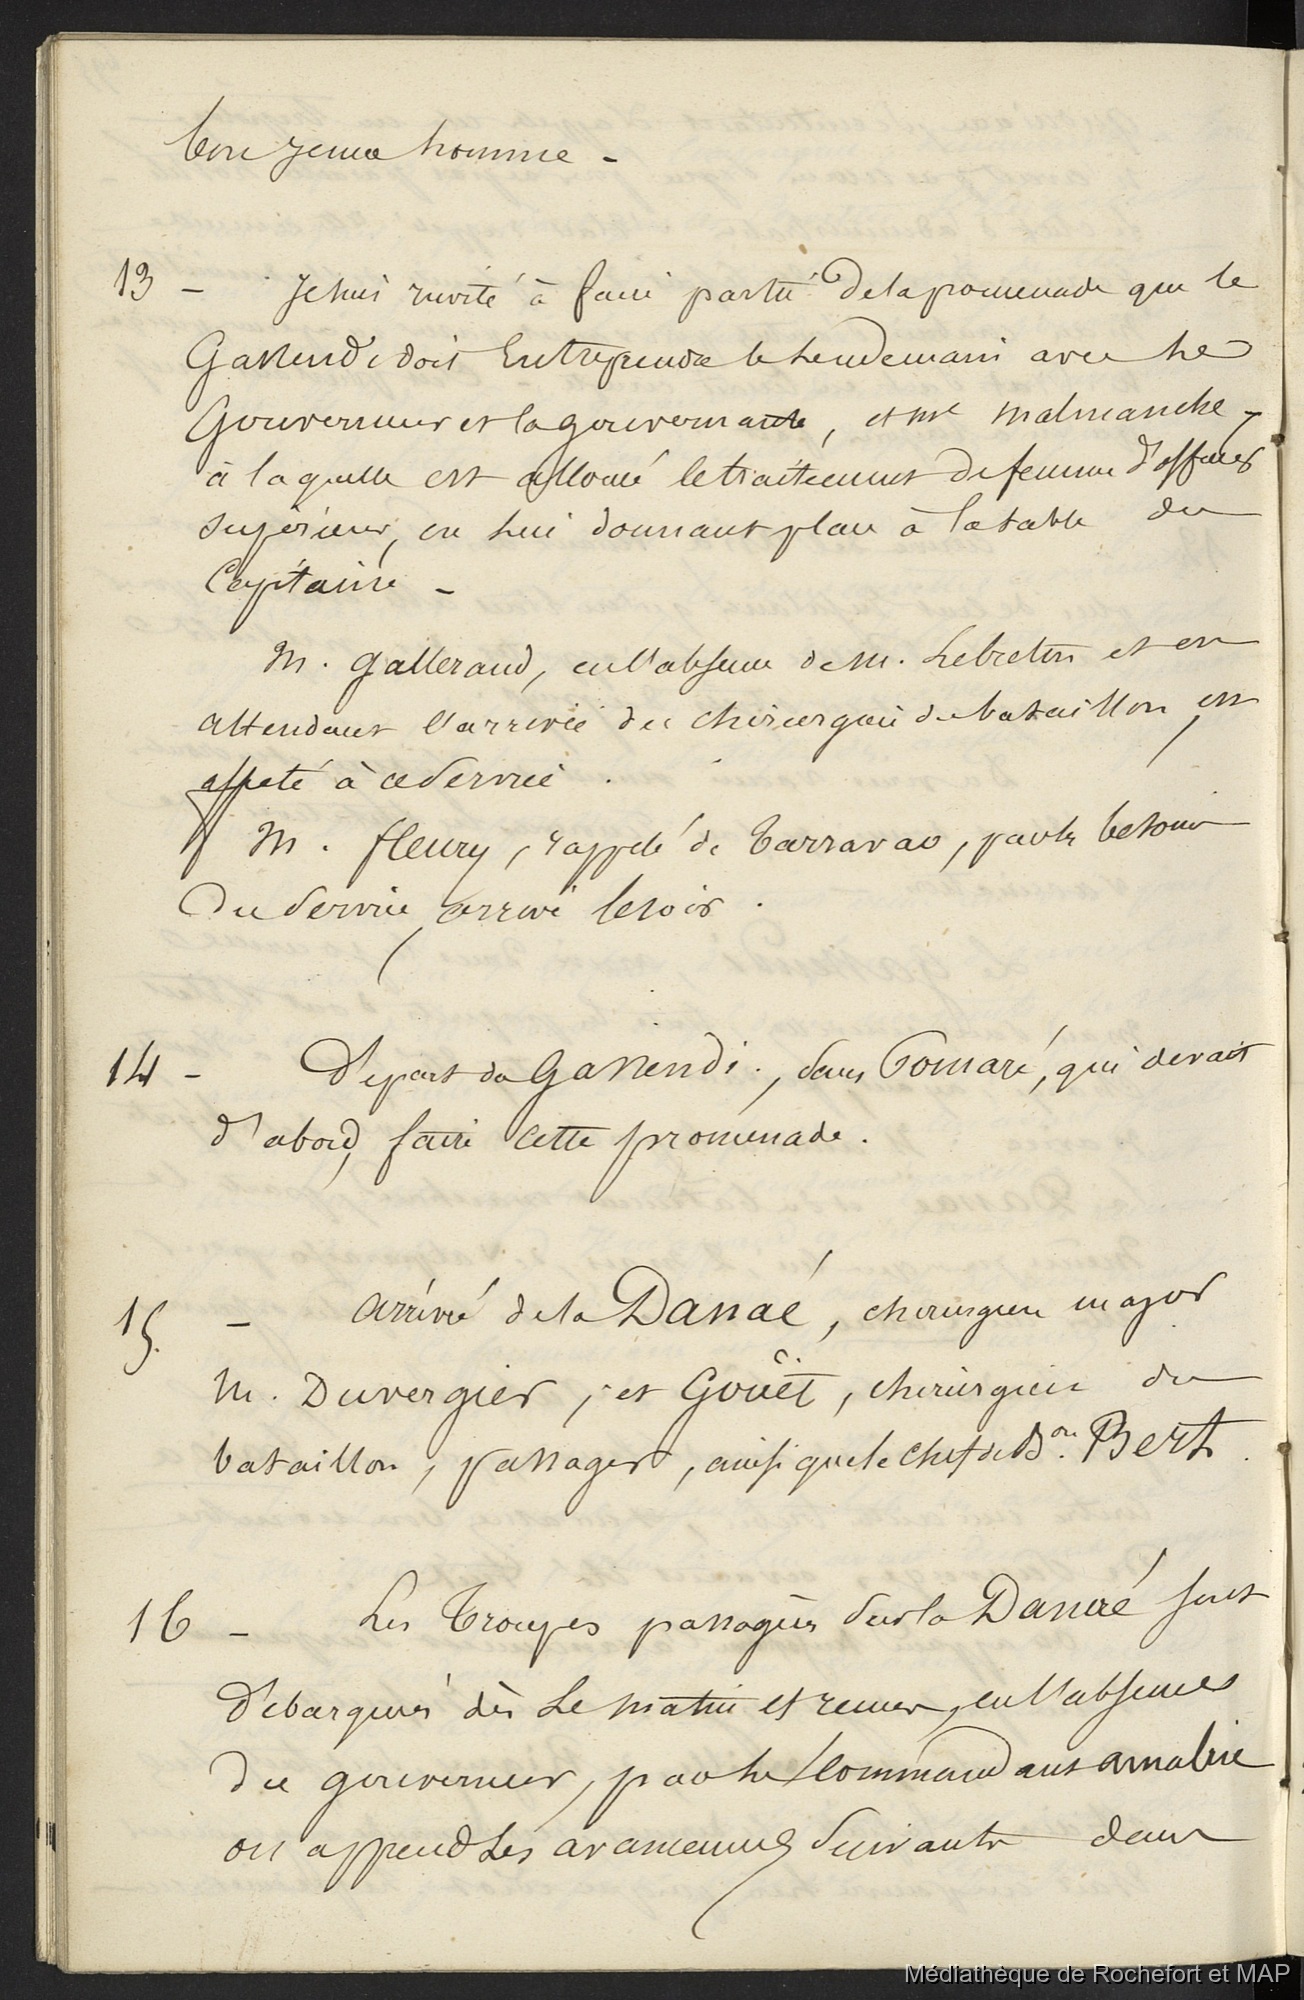 bon jeune homme -
13 - Je suis invité à faire partie de la promenade que le
Gassendi doit Entreprendre le lendemain avec le
Gouverneur et la gouvernante, et me malmanche,
à laquelle est alloué le traitement de femme d'officier
supérieur, en lui donnant place à la table du
Capitaine -
M. gallerand, en l'absence de M. Lebreton et en
attendant l'arrivée du chirurgien du bataillon, est
affecté à ce service.
M. fleury, rappelé de Tarravao, par le besoin
Du service, arrive le soir.
14 - Départ du Gassendi, sans Pomaré, qui devait
d'abord, faire cette promenade.
15. - arrivée de la Danaé, chirurgien major
M. Duvergier, et Gouët, chirurgien du
bataillon, passager, ainsi que le chef de Bon. Bert.
16 - Les Troupes passagères sur la Danaé sont
Débarquées dès Le matin et reçues, en l'absence
du gouverneur, par le Commandant
on apprend Les avancements suivants dans
Médiathèque de Rochefort et MAP